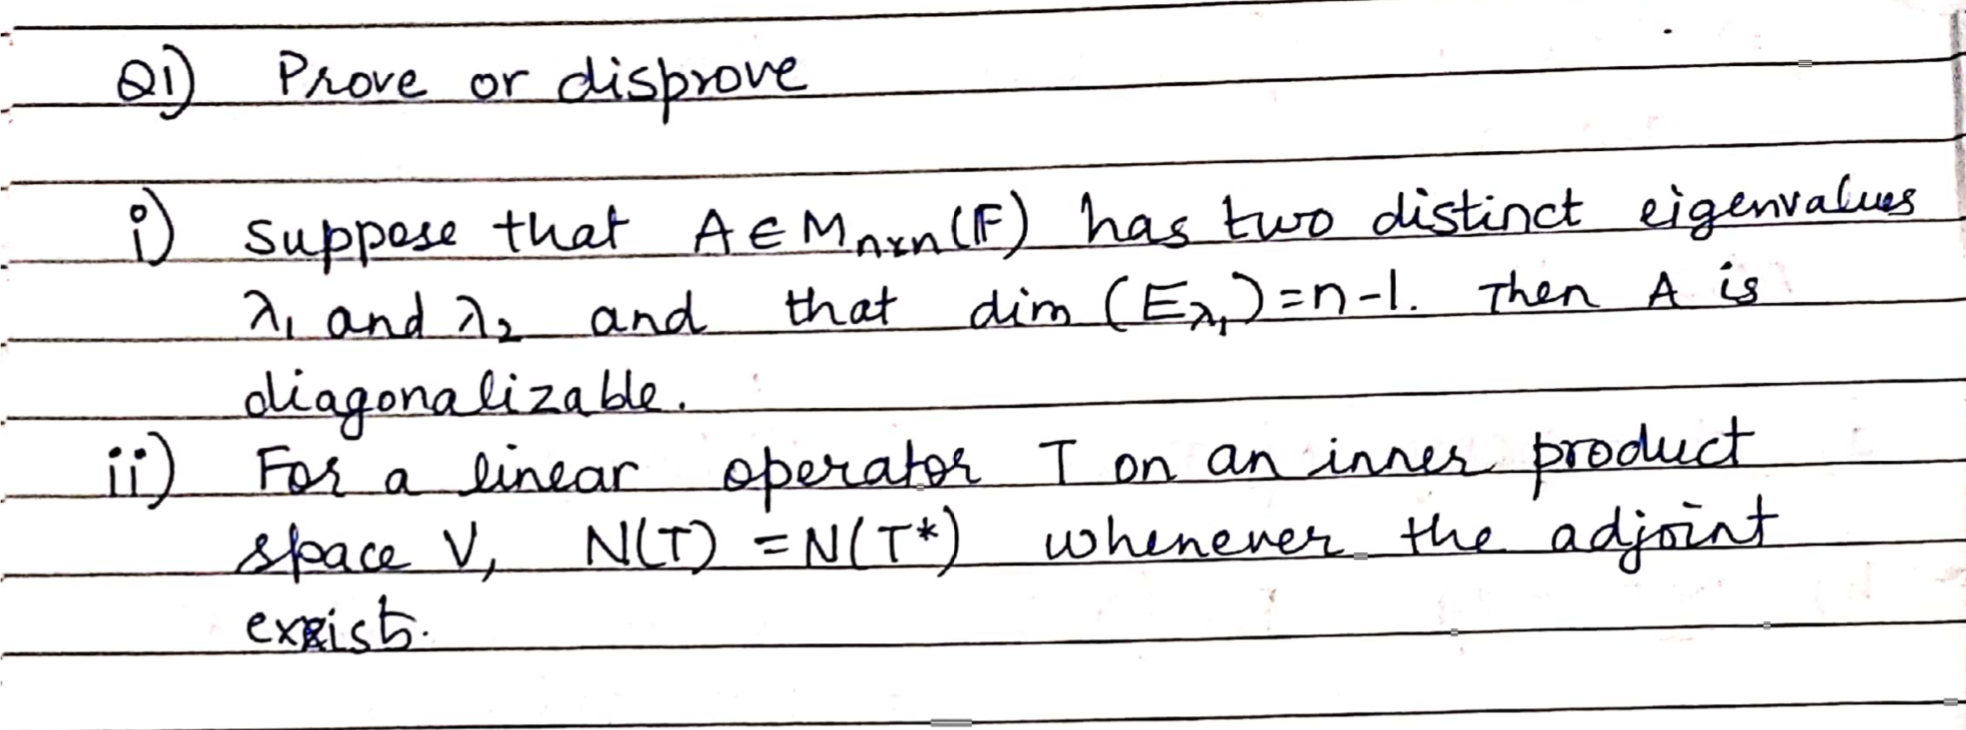 Q1) Prove or disprove
i) suppose that A ∈ Mn×n(F) has two distinct eigenvalues
λ1 and λ2 and that dim (Eλ1) = n-1. Then A is
diagonalizable.
ii) For a linear operator T on an inner product
space V, N(T) = N(T*) whenever the adjoint
exists.